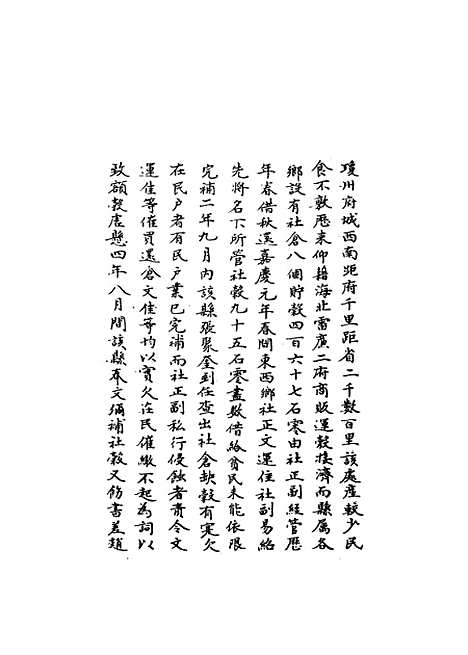 瓊州府城西南距府千里距省二千數百里該處產穀少民
食不敷歷来仰藉海北雷廣二府商販運穀接濟而縣属各
鄉設有社倉八個貯穀四百六十七石零由社正副経管歷
年春借秋還嘉慶元年春間東西鄉社正文運佳社副易紹
先將名下所管社穀九十五石零盡數借給貧民未能依限
完補二年九月內該縣張聚奎到任查出社倉缺穀有寔欠
在民户者有民户業已完補而社正副私行侵蝕者責令文
運佳等催買還倉文佳等均以實欠在民催繳不起為詞以
致額穀虚懸四年八月間該縣奉文彌補社穀又飭書差趙